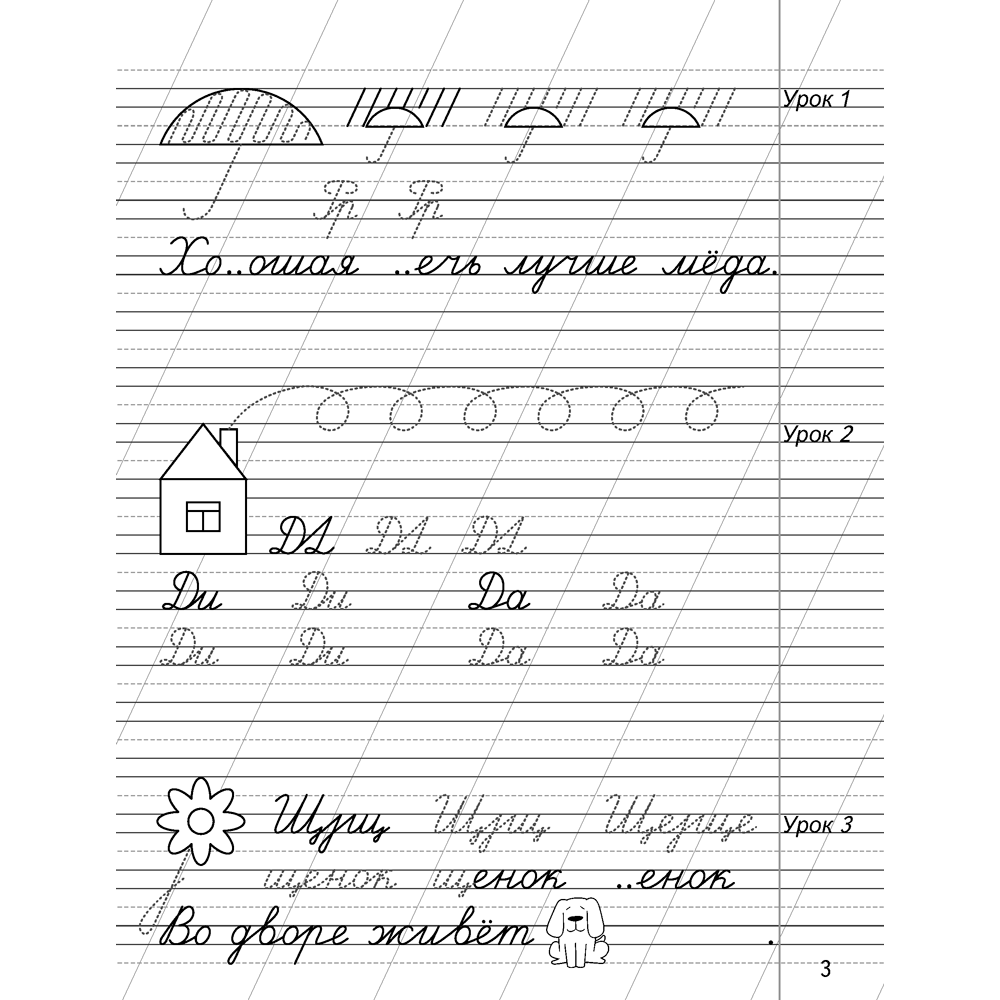 Урок 1
Рр Рр
Хо..ошая ..ечь лучше мёда.
Урок 2
Дд Дд Дд
Ди Ди Да Да
Ди Ди Да Да
Щщ Щщ Щеще Урок 3
щенок щенок ..енок
Во дворе живёт .
3